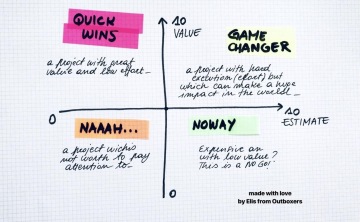 QUICK
WINS
10
VALUE
GAME
CHANGER
a project with great
value and low effort_
a project with hard
execution (effort) but
which can make a huge
impact in the world_
0
10
ESTIMATE
NAAAH...
NOWAY
a project which is
not worth to pay
attention to_
Expensive an
with low value?
This is a NO GO!
0
made with love
by Elis from Outboxers